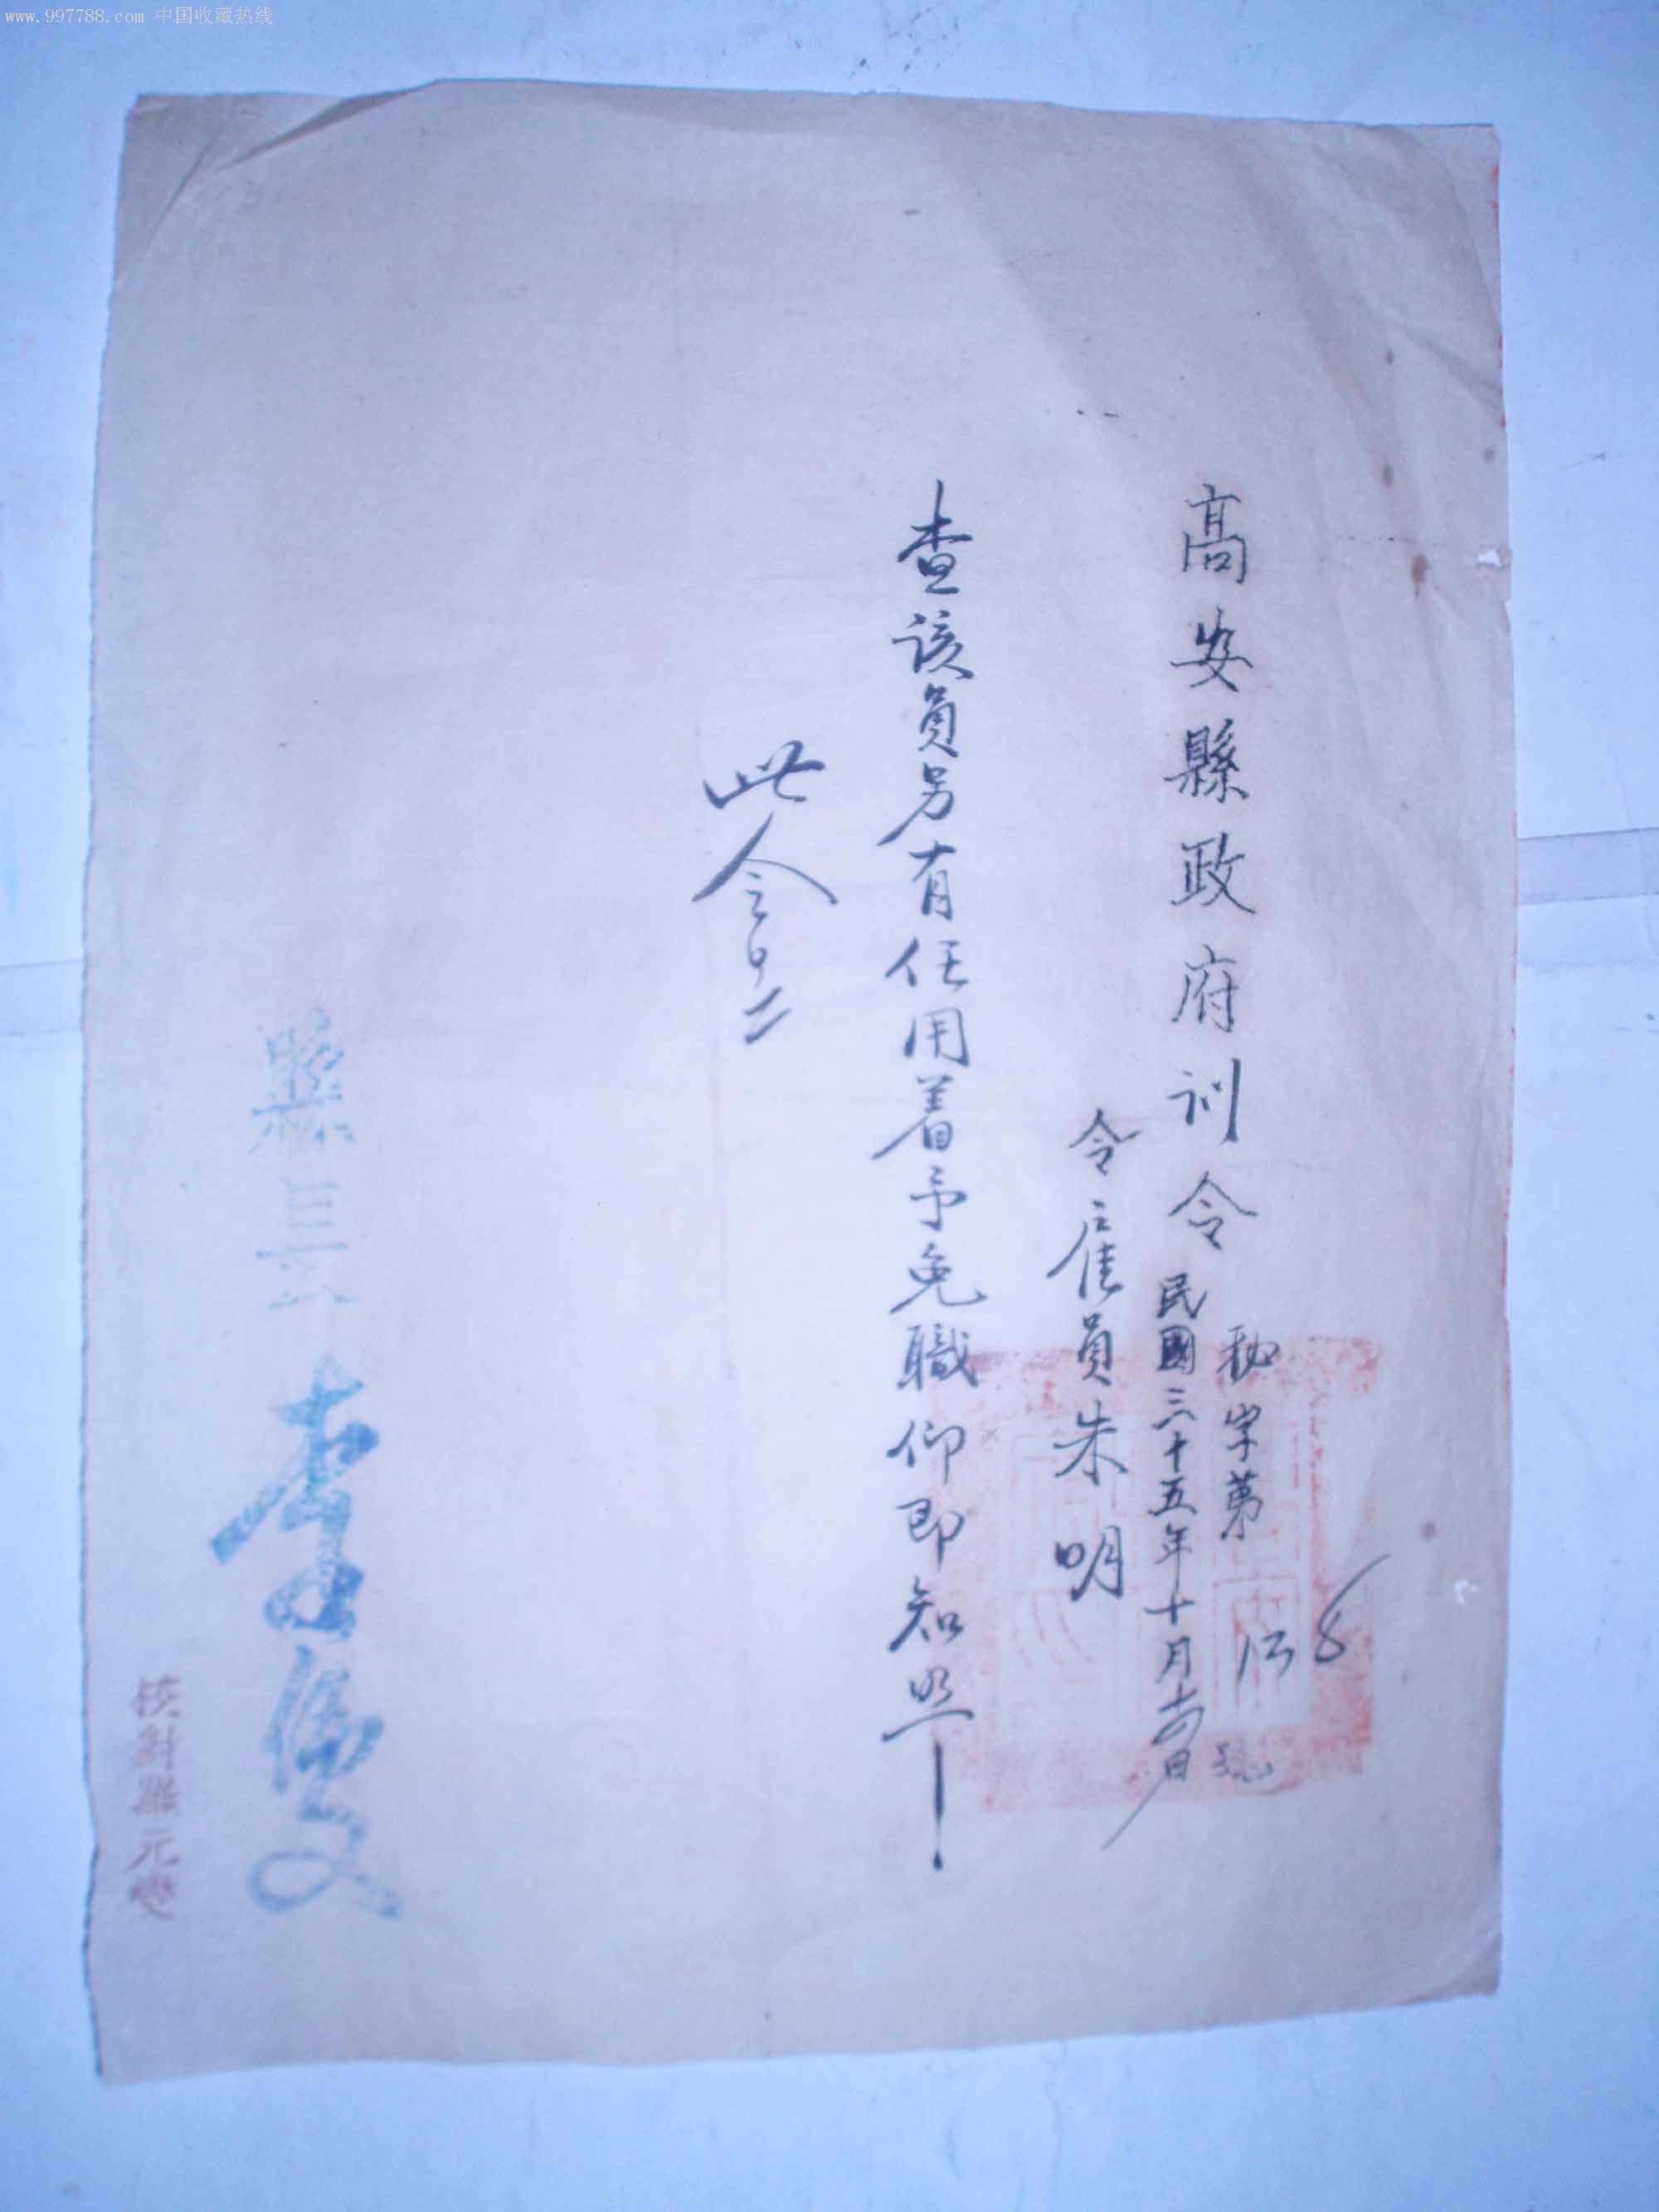 www.997788.com 中国收藏热线
高安縣政府训令
秘字第 號
民國三十五年十月 日
令雇員朱明
查該員另有任用着予免職仰即知照
此令
縣長李
校對羅元